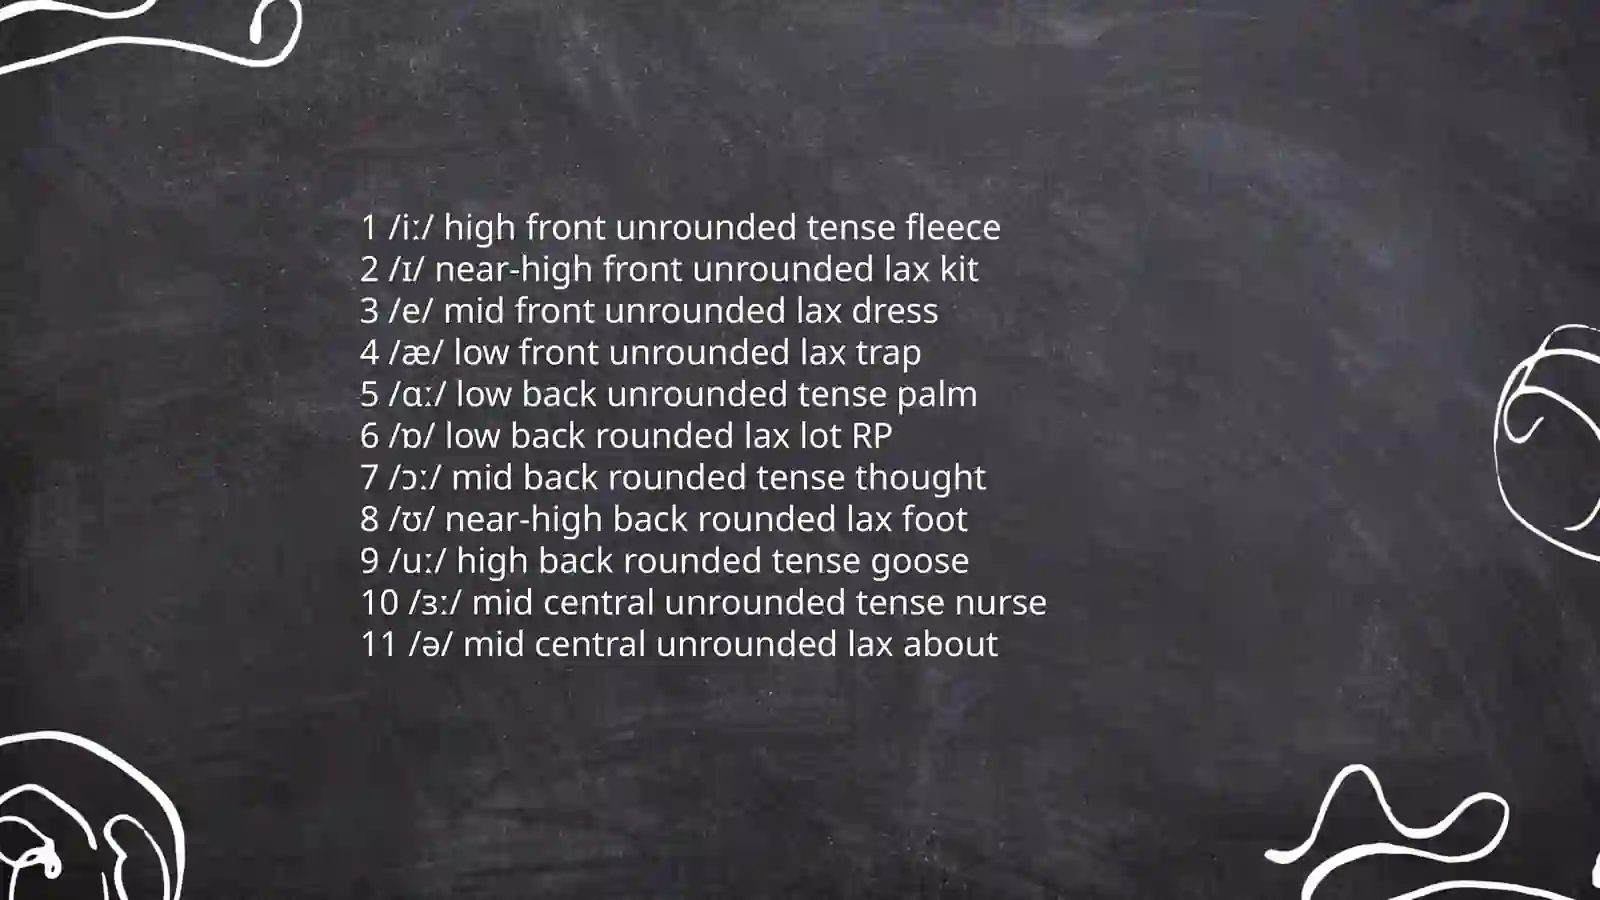 1 /iː/ high front unrounded tense fleece
2 /ɪ/ near-high front unrounded lax kit
3 /e/ mid front unrounded lax dress
4 /æ/ low front unrounded lax trap
5 /ɑː/ low back unrounded tense palm
6 /ɒ/ low back rounded lax lot RP
7 /ɔː/ mid back rounded tense thought
8 /ʊ/ near-high back rounded lax foot
9 /uː/ high back rounded tense goose
10 /ɜː/ mid central unrounded tense nurse
11 /ə/ mid central unrounded lax about